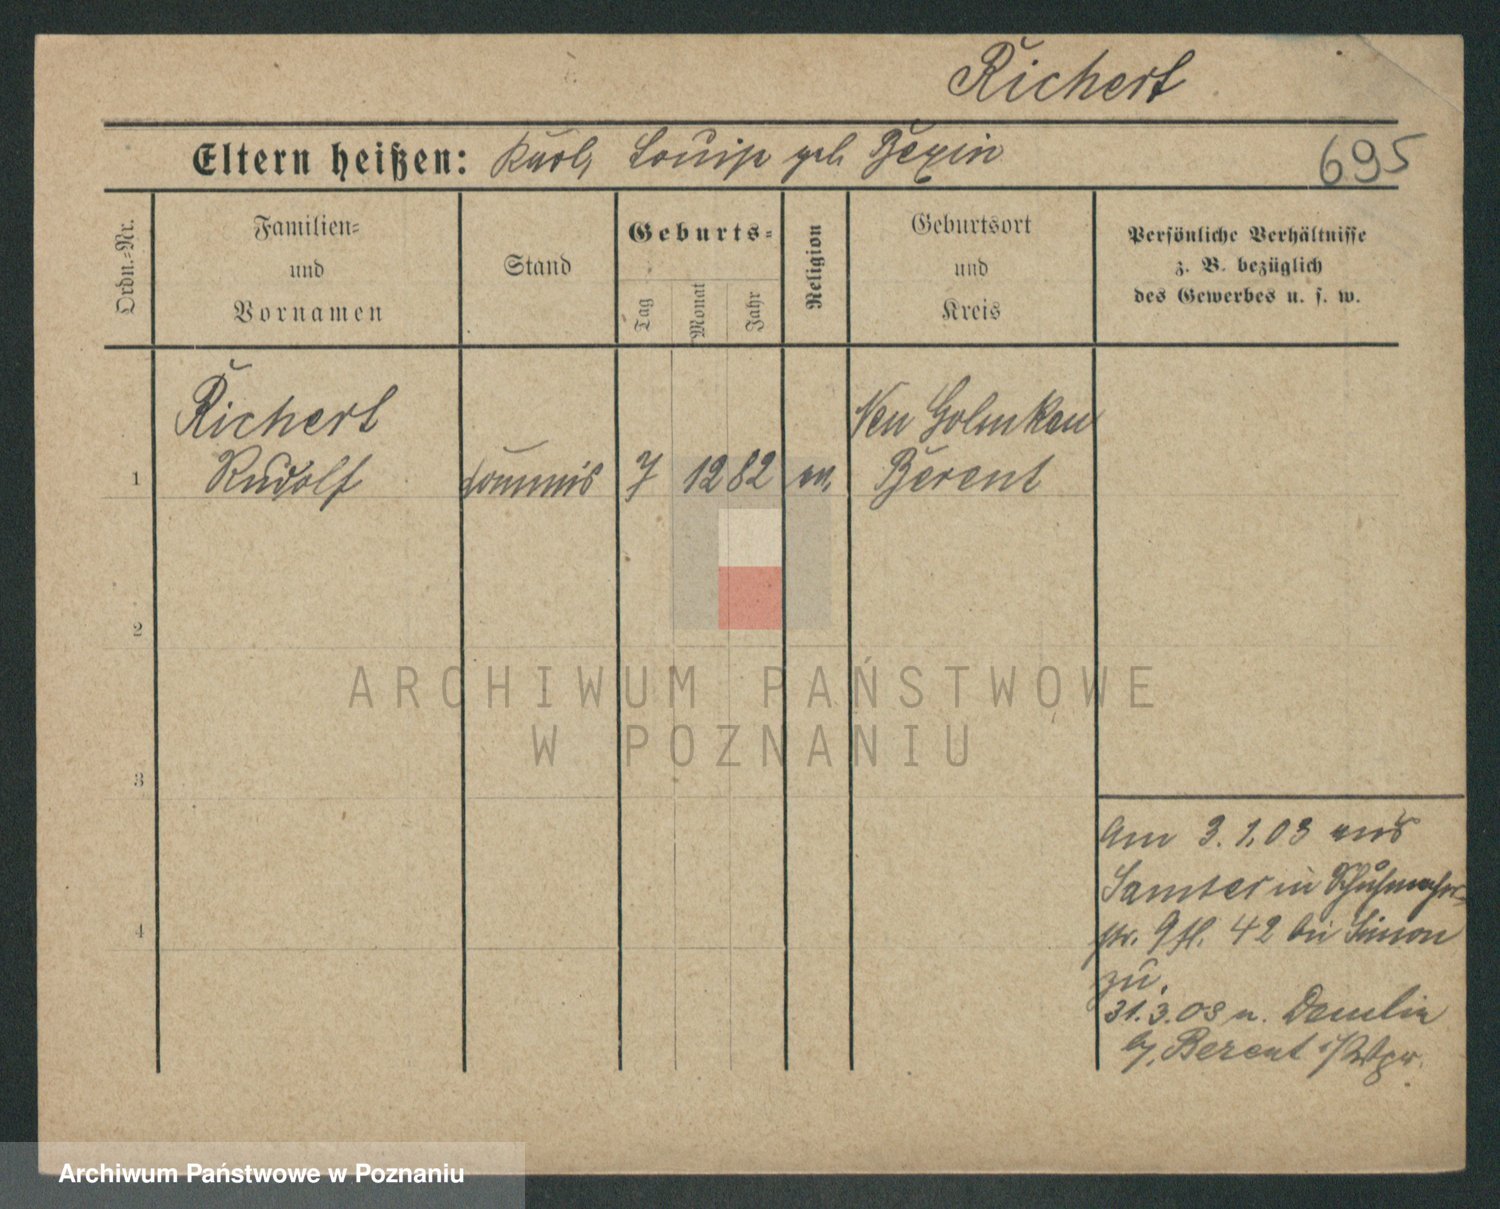 Richert
Eltern heißen: Karl, Louise geb. Bexin
695
Ordn.-Nr.
Familien-
und
Vornamen
Stand
Geburts-
Tag
Monat
Jahr
Religion
Geburtsort
und
Kreis
Persönliche Verhältnisse
z. B. bezüglich
des Gewerbes u. s. w.
Richert
Neu Golmkau
1 Rudolf Commis 7 12 82 ev. Berent
2
3
4
Am 3.1.03 aus
Samter in Schuhmacher-
str. 9 42 bei Simon
zu.
31.3.03 n.
b/ Berent i/Wpr.
ARCHIWUM PAŃSTWOWE
W POZNANIU
Archiwum Państwowe w Poznaniu